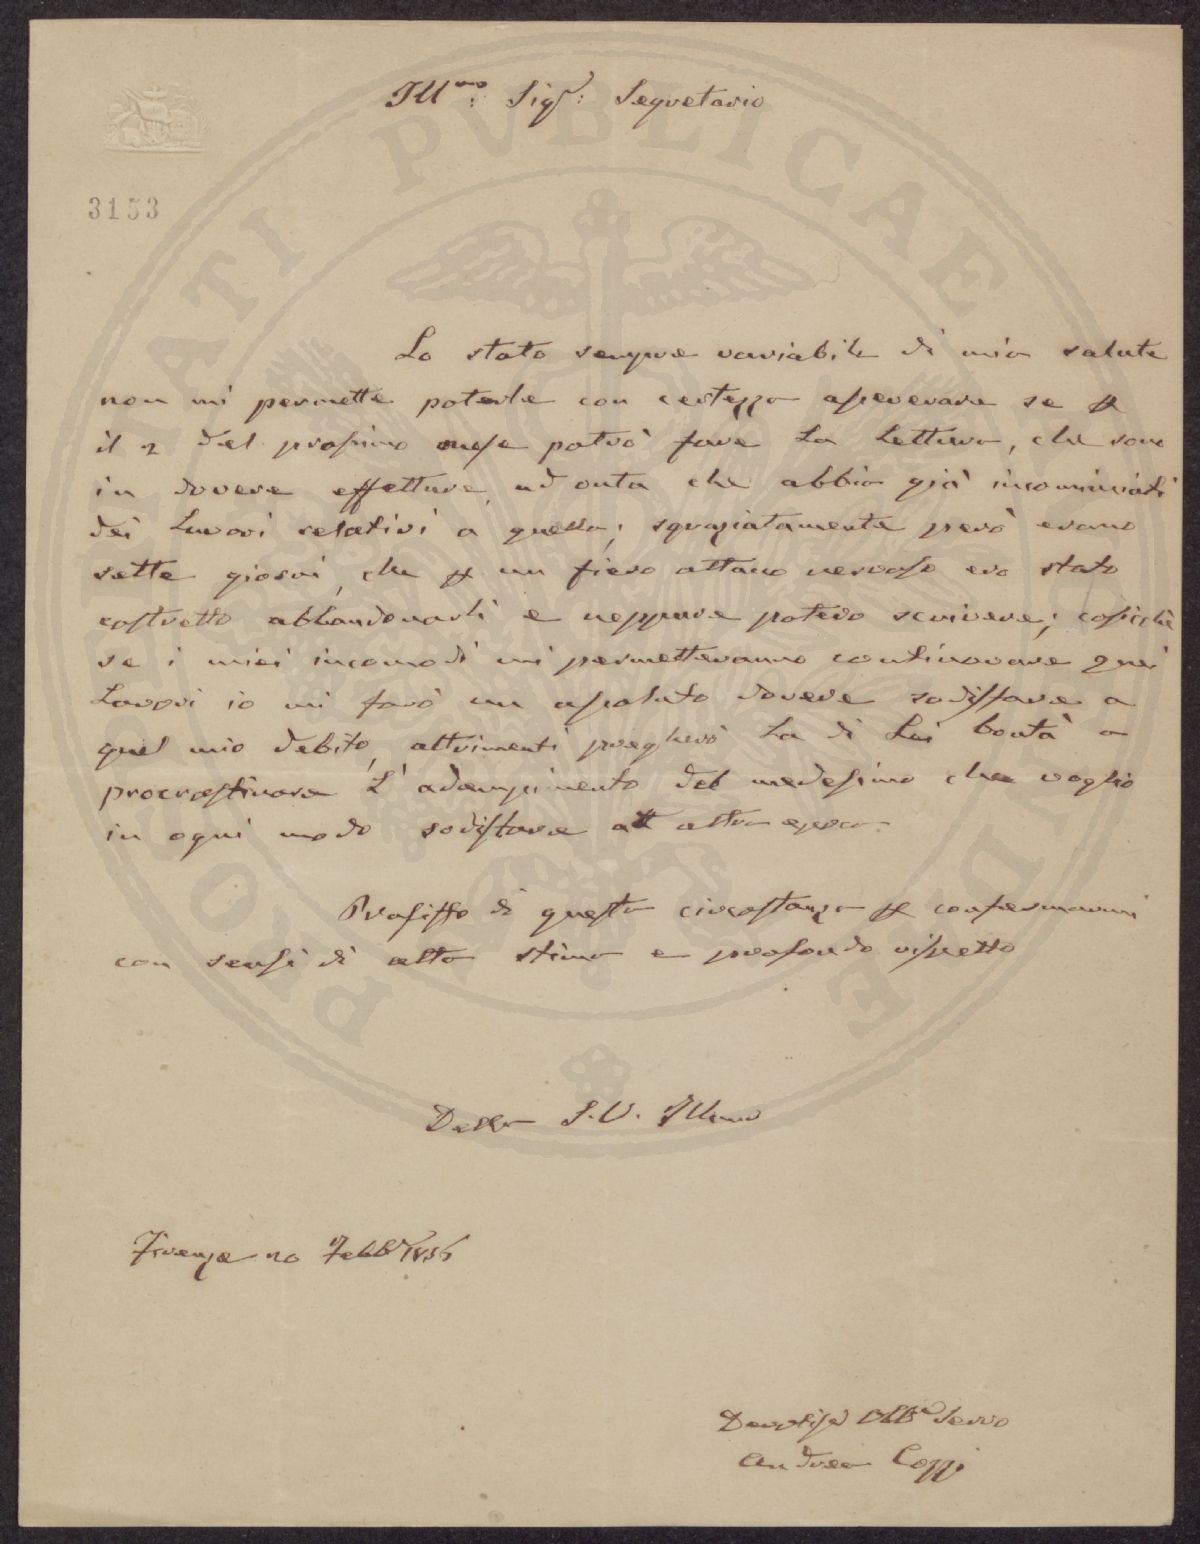 Ill.mo: Sigr: Segretario
3153
Lo stato sempre variabile di mia salute
non mi permette poterle con certezza asseverare se p
il 2 del prossimo mese potrò fare la Lettura, che sono
in dovere effettuare, ad onta che abbia già incominciati
dei Lavori relativi a quella; sgraziatamente però erano
sette giorni, che p un fiero attacco nervoso ero stato
costretto abbandonarli e neppure potevo scrivere; cosicchè
se i miei incomodi mi permetteranno continovare quei
Lavori io mi farò un assoluto dovere sodisfare a
quel mio debito, altrimenti pregherò La di Lei bontà a
procrastinare l'adempimento del medesimo che voglio
in ogni modo sodisfare altra epoca.
Profitto di questa circostanza p confermarmi
con sensi di alta stima e profondo rispetto
Della S.V. Illma
Firenze 20 Febb 1856
Devotiss Obb Servo
Andrea Cozzi
PROSPERITATI PVBLICAE